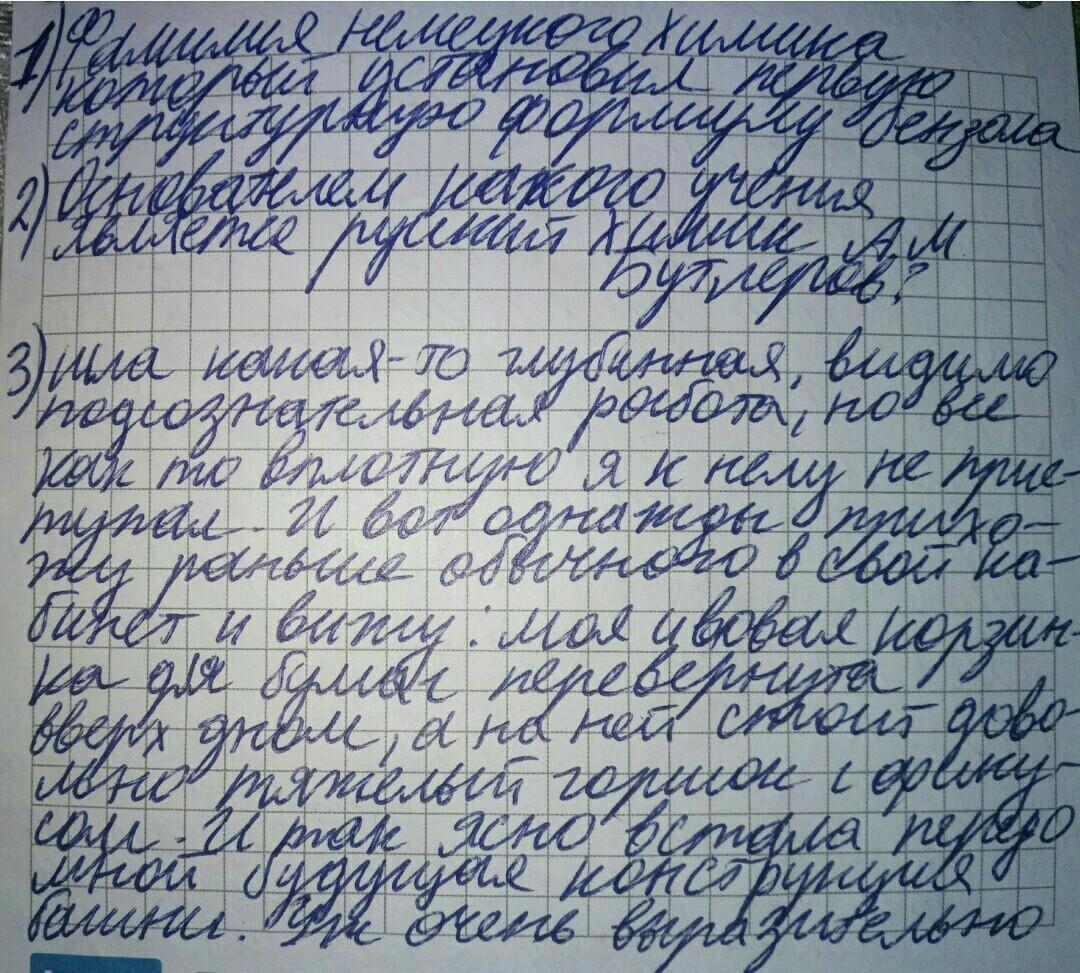 1) Фамилия немецкого химика
который установил первую
структурную формулу бензола
2) Основателем какого учения
является русский химик А.М
Бутлеров?
3) шла какая-то глубинная, видимо
подсознательная работа, но все
как то вплотную я к нему не прис-
тупал. И вот однажды прихо-
жу раньше обычного в свой ка-
бинет и вижу: моя ивовая корзин-
ка для бумаг перевернута
вверх дном, а на ней стоит дово-
льно тяжелый горшок с фику-
сом. И так ясно встала передо
мной будущая конструкция
башни. Уж очень выразительно